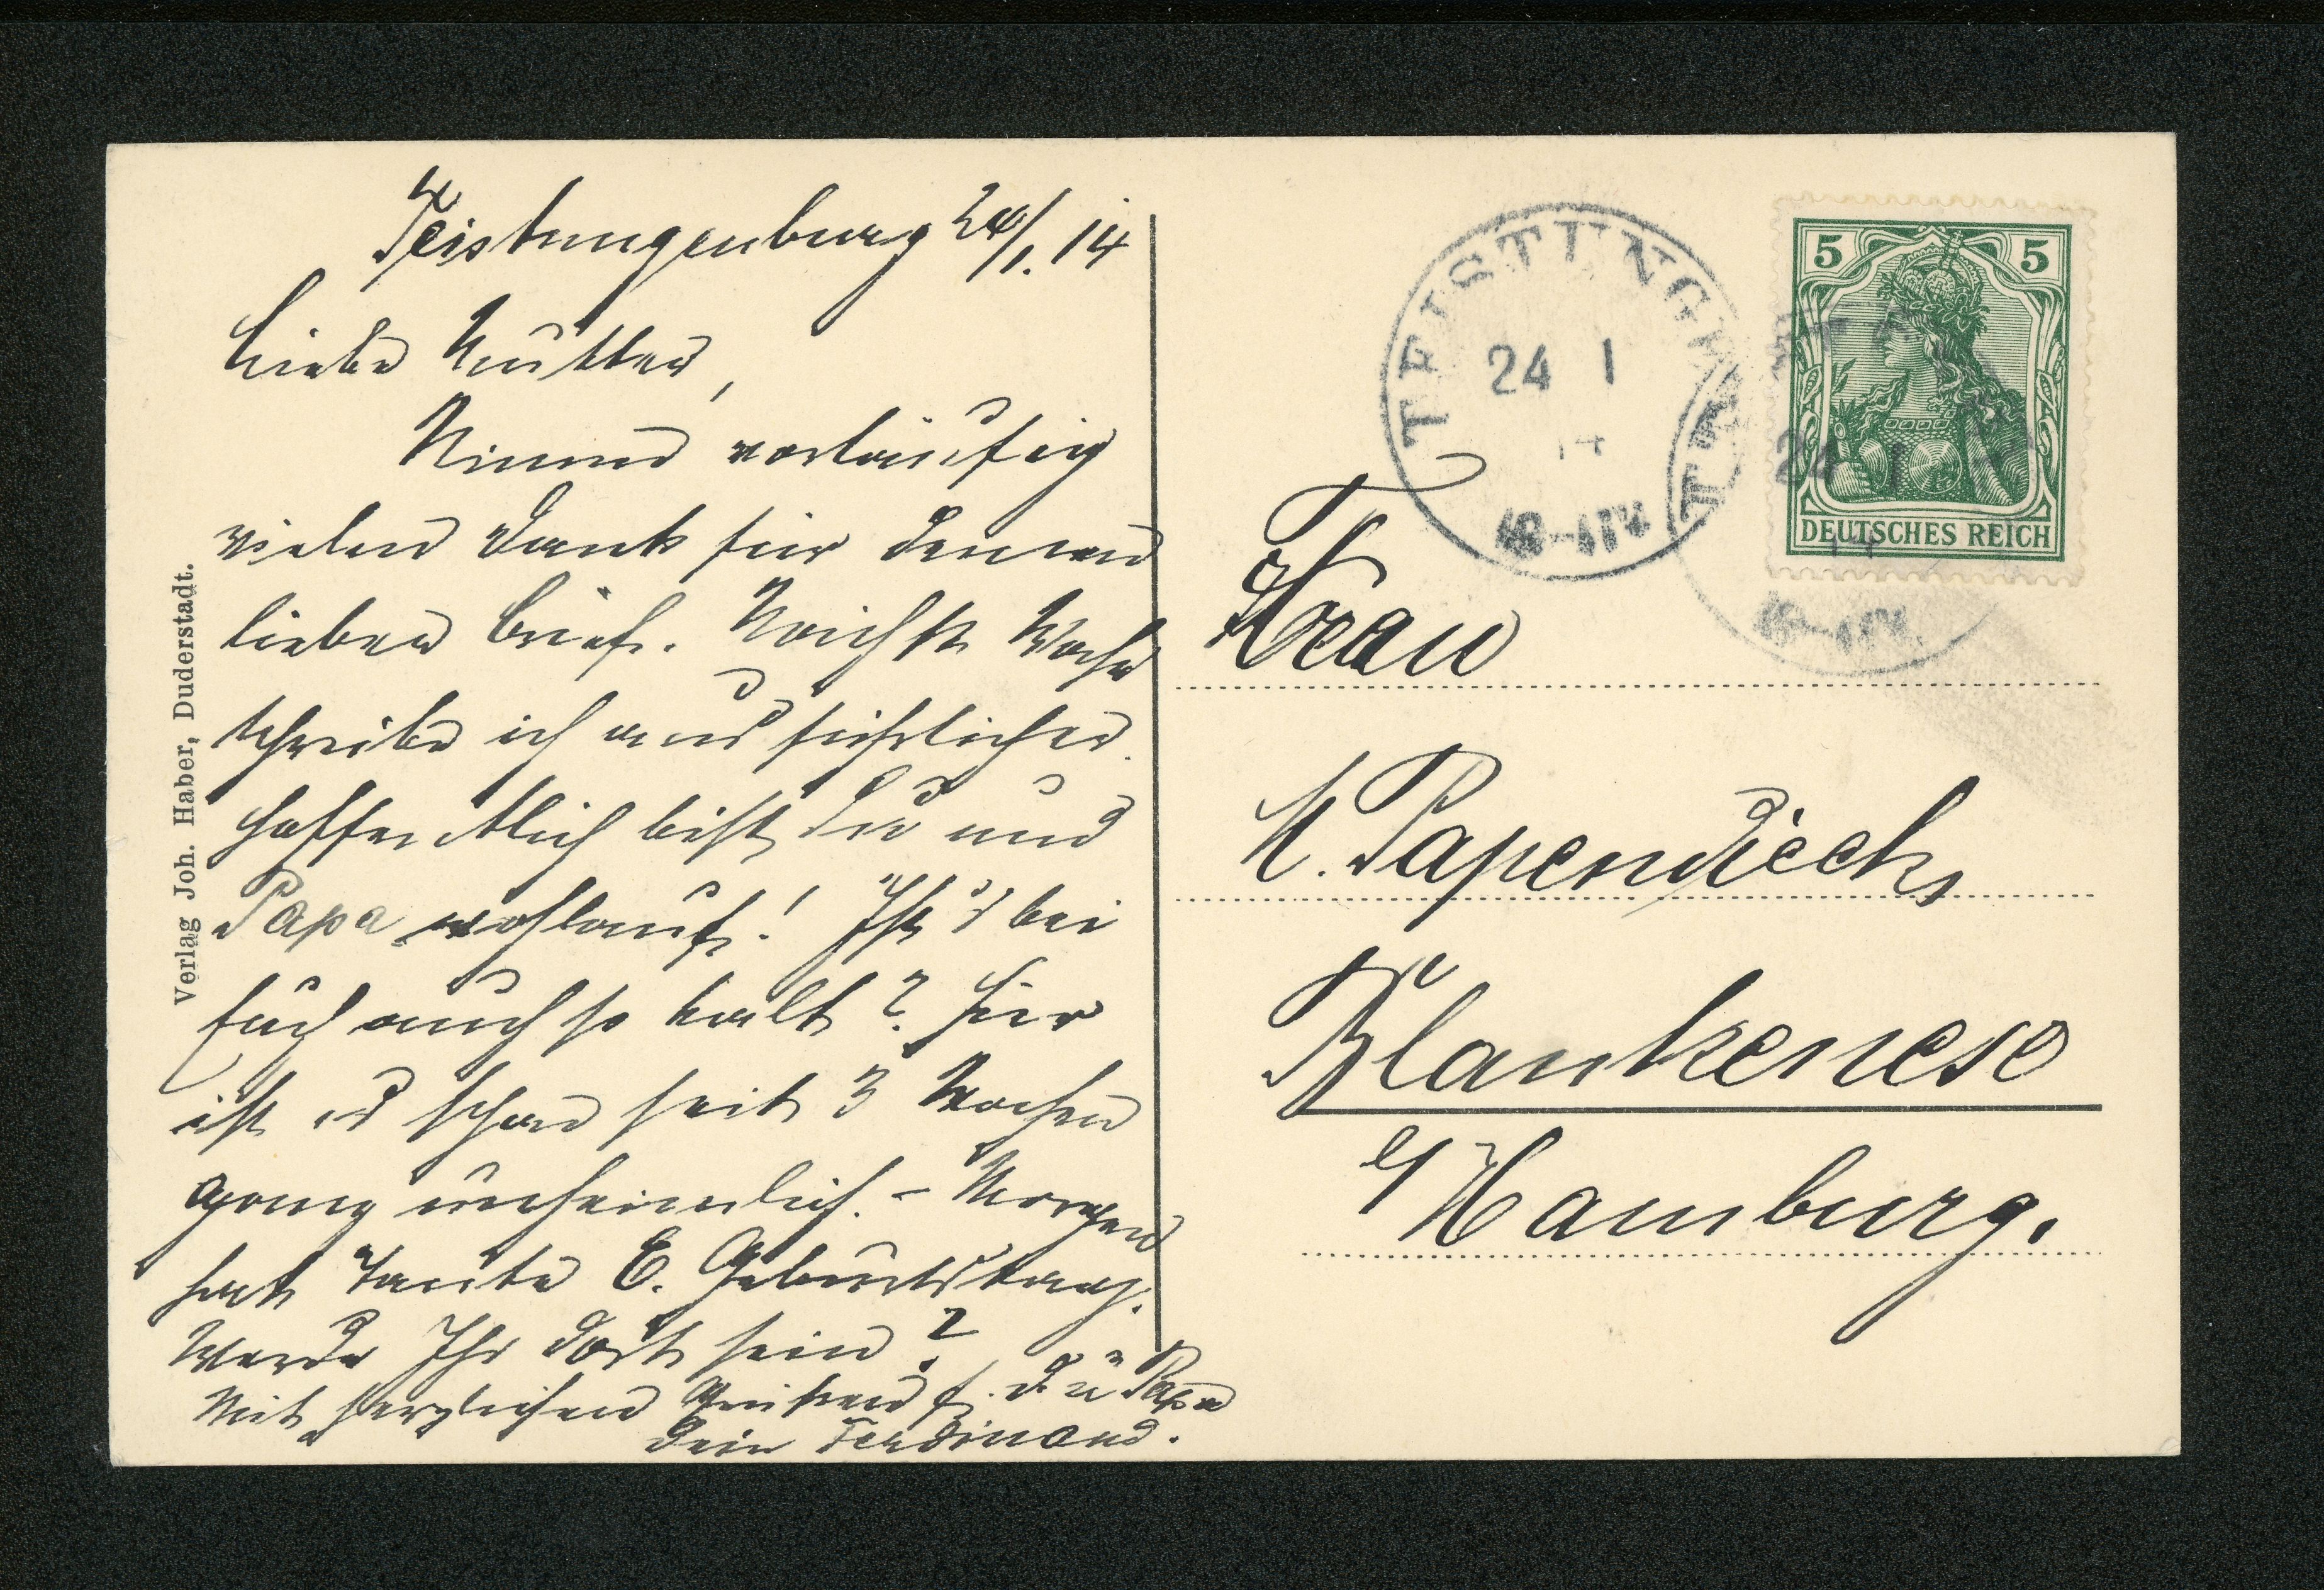 Teistungenburg 24/1. 14
Liebe Mutter,
Nimm vorläufig
vielen Dank für Deinen
lieben Brief. Nächste Woche
schreibe ich ausführlicher.
Hoffentlich bist Du und
Papa wohlauf! Ist's bei
Euch auch so kalt? Hier
ist es schon seit 3 Wochen
ganz unheimlich. – Morgen
hat Tante E. Geburtstag.
Werdet Ihr dort sein?
Mit herzlichen Grüßen f. D. u. Papa
Dein Ferdinand.
Verlag Joh. Haber, Duderstadt.
TEISTUNGEN
24 1
14
TEI
24 1
14
5 5
DEUTSCHES REICH
Frau
M. Papendieck,
Blankenese
b/Hamburg.